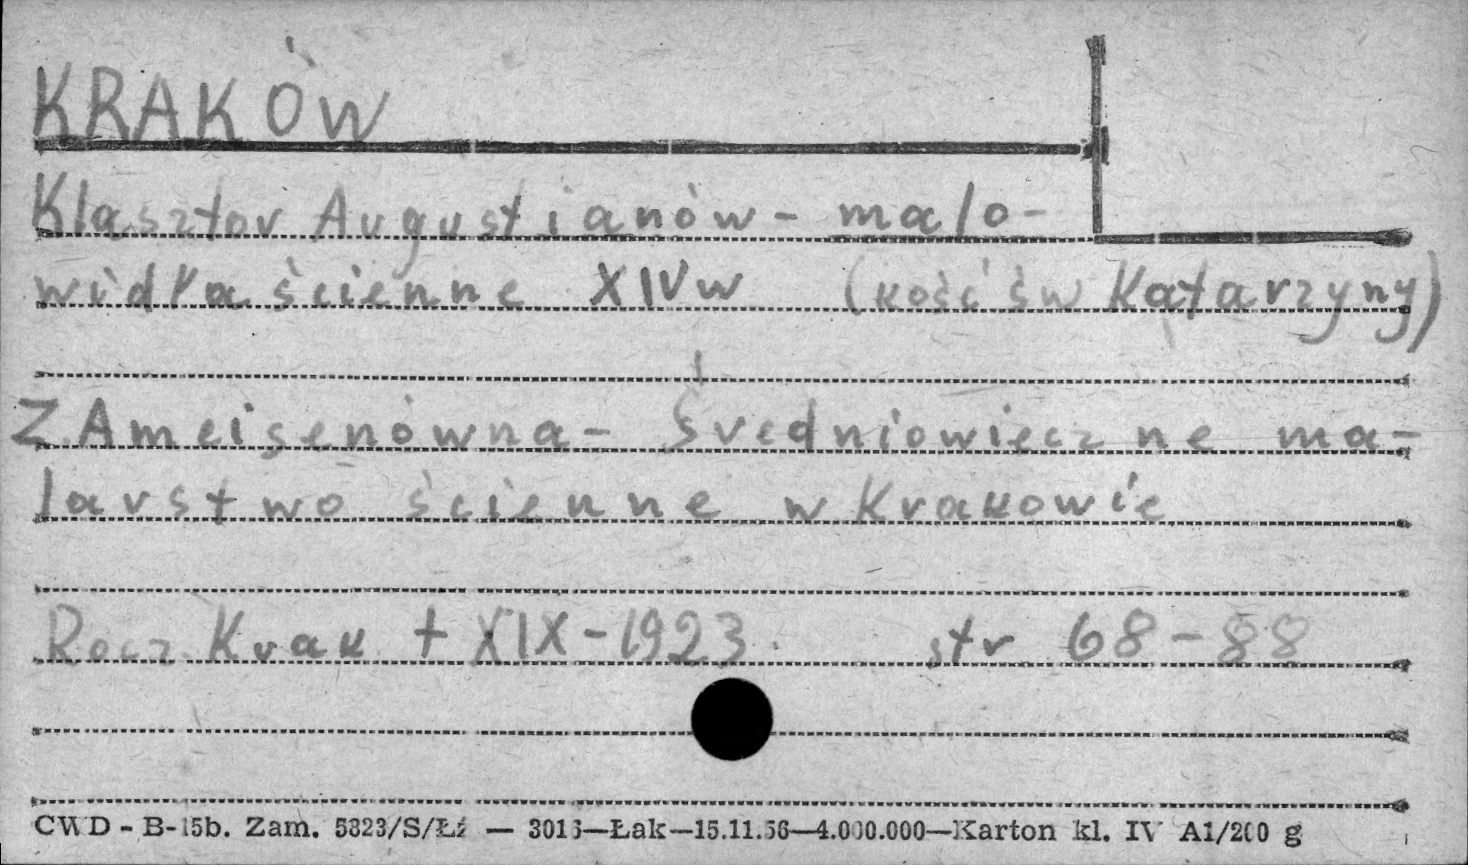 KRAKÓW
Klasztor Augustianów - malo-
widła ścienne XIV w (kość św Katarzyny)
Z. Ameisenówna - Średniowieczne ma-
larstwo ścienne w Krakowie
Rocz. Krak t XIX - 1923. str 68 - 88
CWD - B-15b. Zam. 5823/S/Łź — 3016—Łak—15.11.56—4.000.000—Karton kl. IV A1/200 g